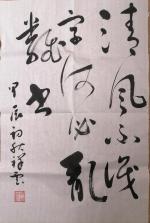 清風不識
字何必亂
翻書
甲辰初秋祥雲